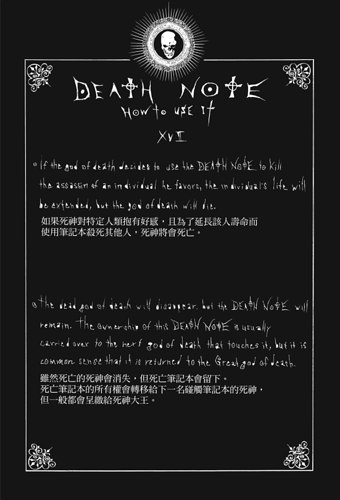 DEATH NOTE
HOW TO USE IT
XVI
If the god of death decides to use the DEATH NOTE to kill
the assassin of an individual he favors, the individual's life will
be extended, but the god of death will die.
如果死神對特定人類抱有好感，且為了延長該人壽命而
使用筆記本殺死其他人，死神將會死亡。
The dead god of death will disappear, but the DEATH NOTE will
remain. The ownership of this DEATH NOTE is usually
carried over to the next god of death that touches it, but it is
common sense that it is returned to the Great god of death.
雖然死亡的死神會消失，但死亡筆記本會留下。
死亡筆記本的所有權會轉移給下一名碰觸筆記本的死神，
但一般都會呈繳給死神大王。